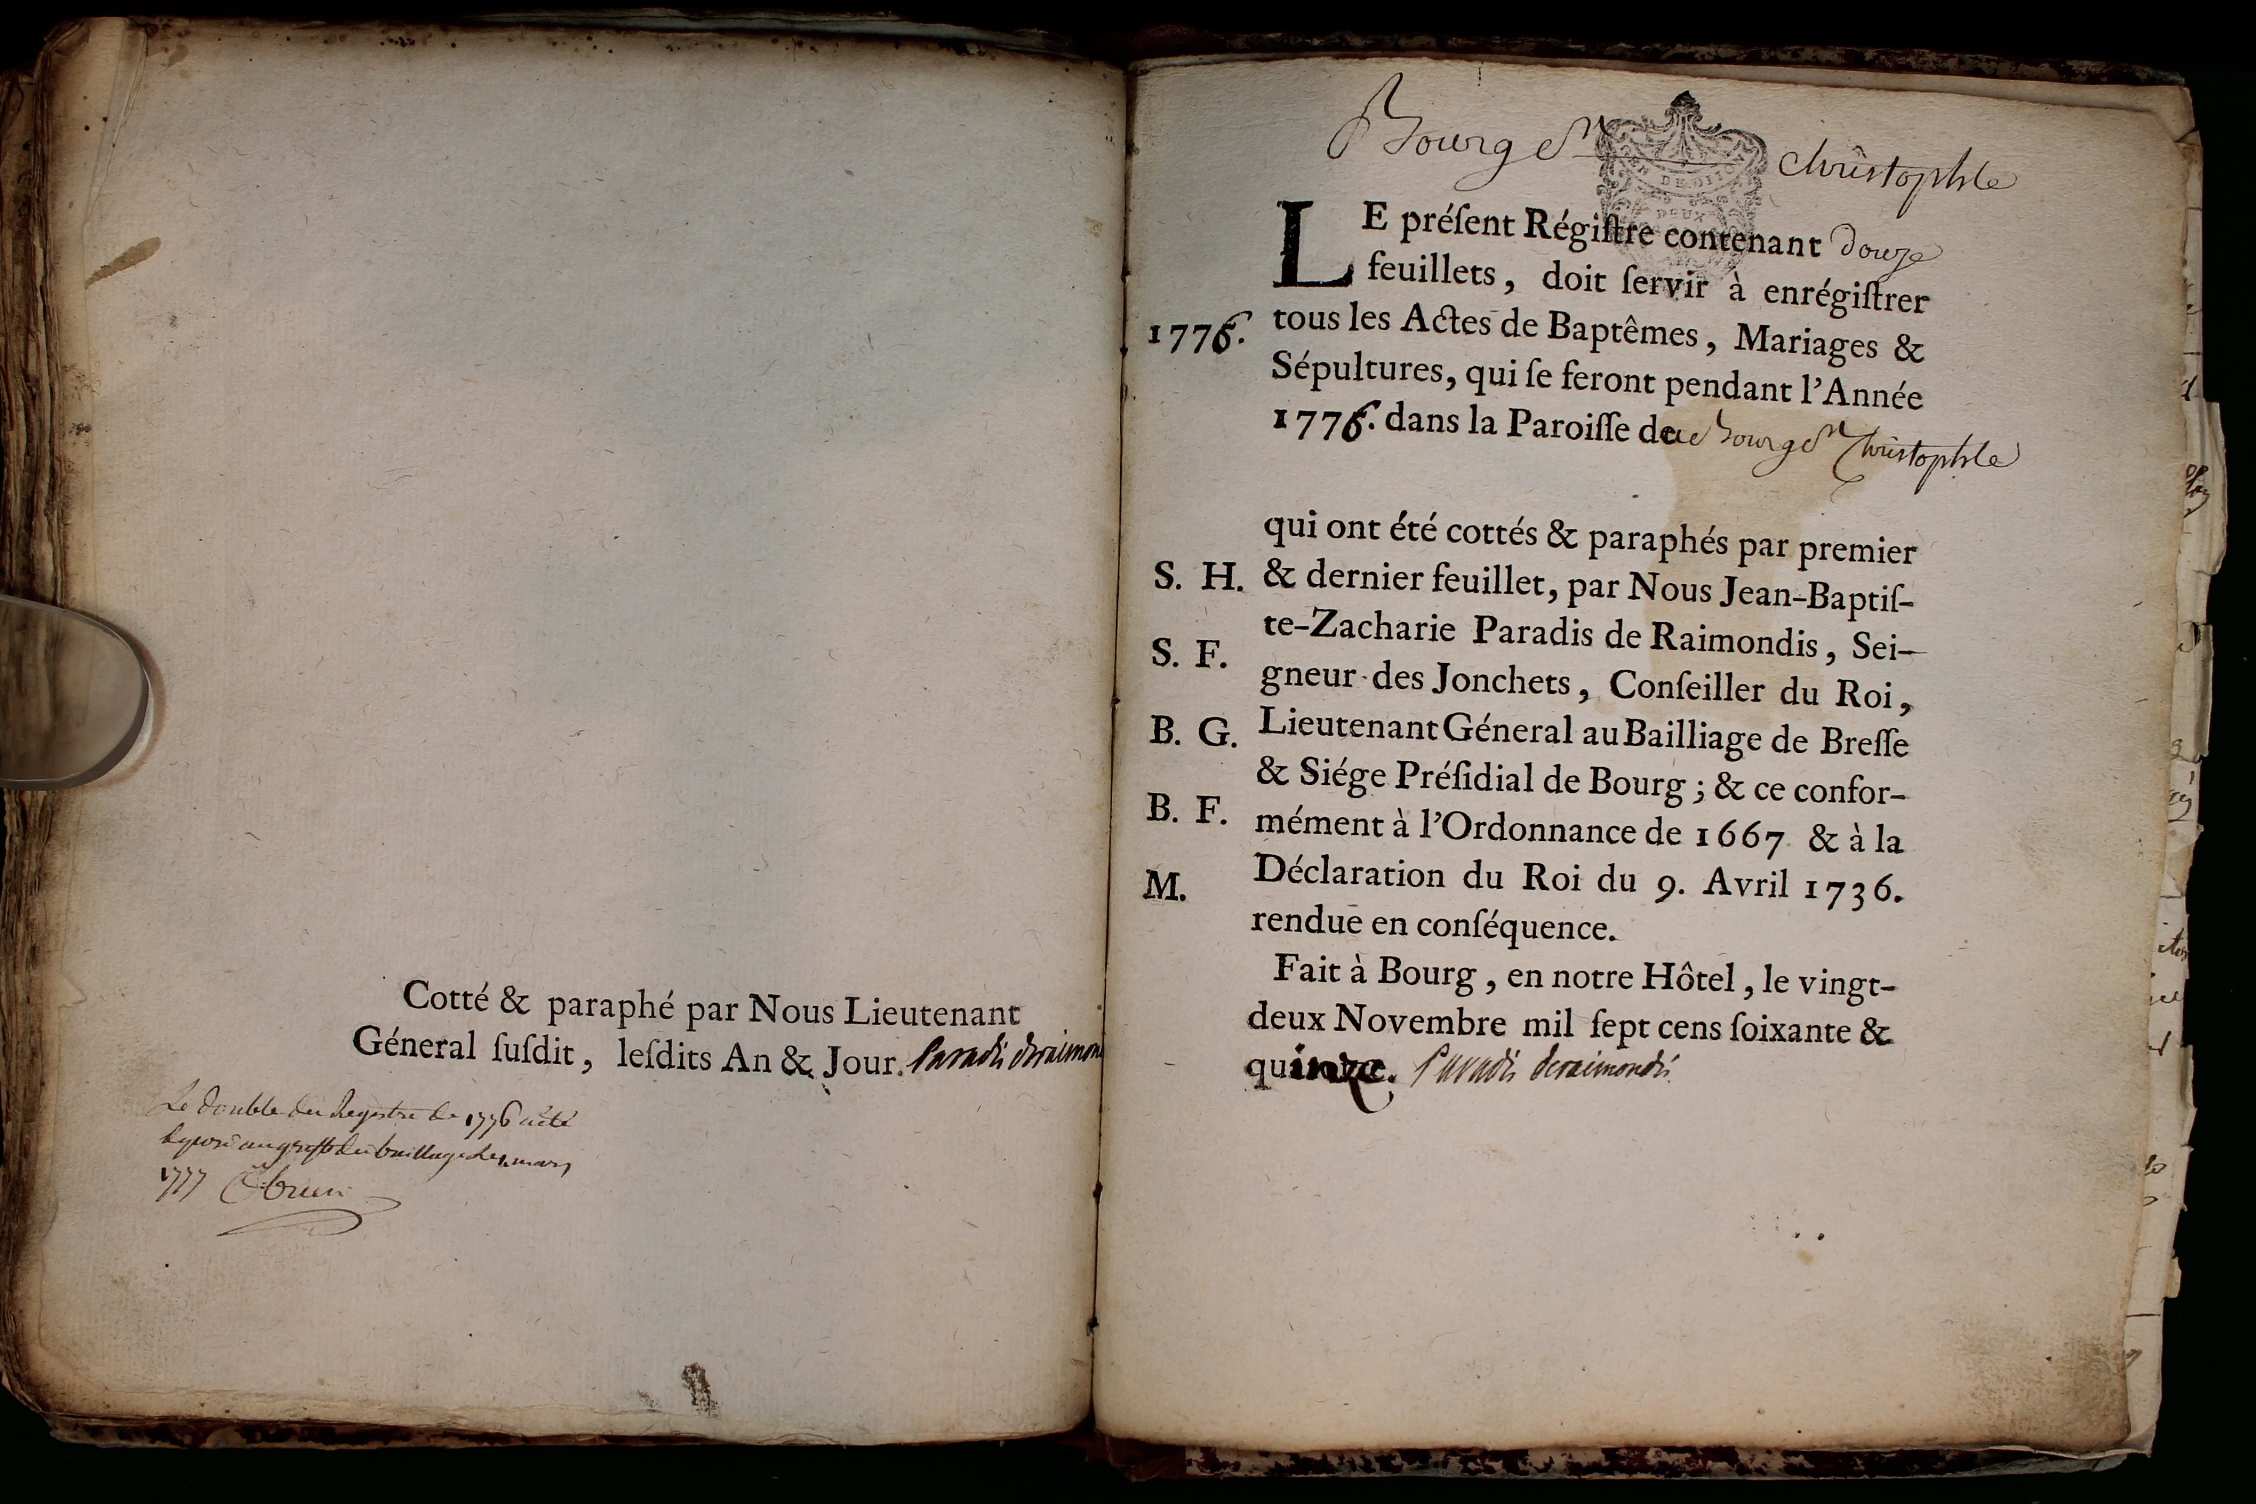 Cotté & paraphé par Nous Lieutenant
Géneral ſuſdit, leſdits An & Jour. Paradis deraimon
Le double du Registre de 1776 a été
deposé au greffe du bailliage le mars
1777
Bourg St Christophle
LE préſent Régiſtre contenant douze
feuillets, doit ſervir à enrégiſtrer
1776. tous les Actes de Baptêmes, Mariages &
Sépultures, qui ſe feront pendant l'Année
1776. dans la Paroiſſe de Bourg St Christophle
qui ont été cottés & paraphés par premier
S. H. & dernier feuillet, par Nous Jean-Baptiſ-
te-Zacharie Paradis de Raimondis, Sei-
S. F. gneur des Jonchets, Conſeiller du Roi,
B. G. Lieutenant Géneral au Bailliage de Breſſe
& Siége Préſidial de Bourg; & ce confor-
B. F. mément à l'Ordonnance de 1667 & à la
M. Déclaration du Roi du 9. Avril 1736.
rendue en conſéquence.
Fait à Bourg, en notre Hôtel, le vingt-
deux Novembre mil ſept cens ſoixante &
quinze. Paradis deraimondis